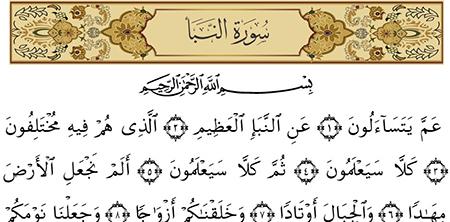 سُورَةُ النَّبَإِ
بِسْمِ اللَّهِ الرَّحْمَٰنِ الرَّحِيمِ
عَمَّ يَتَسَآءَلُونَ ﴿١﴾ عَنِ النَّبَإِ الْعَظِيمِ ﴿٢﴾ الَّذِى هُمْ فِيهِ مُخْتَلِفُونَ
﴿٣﴾ كَلَّا سَيَعْلَمُونَ ﴿٤﴾ ثُمَّ كَلَّا سَيَعْلَمُونَ ﴿٥﴾ أَلَمْ نَجْعَلِ الْأَرْضَ
مِهَٰدًا ﴿٦﴾ وَالْجِبَالَ أَوْتَادًا ﴿٧﴾ وَخَلَقْنَٰكُمْ أَزْوَٰجًا ﴿٨﴾ وَجَعَلْنَا نَوْمَكُمْ